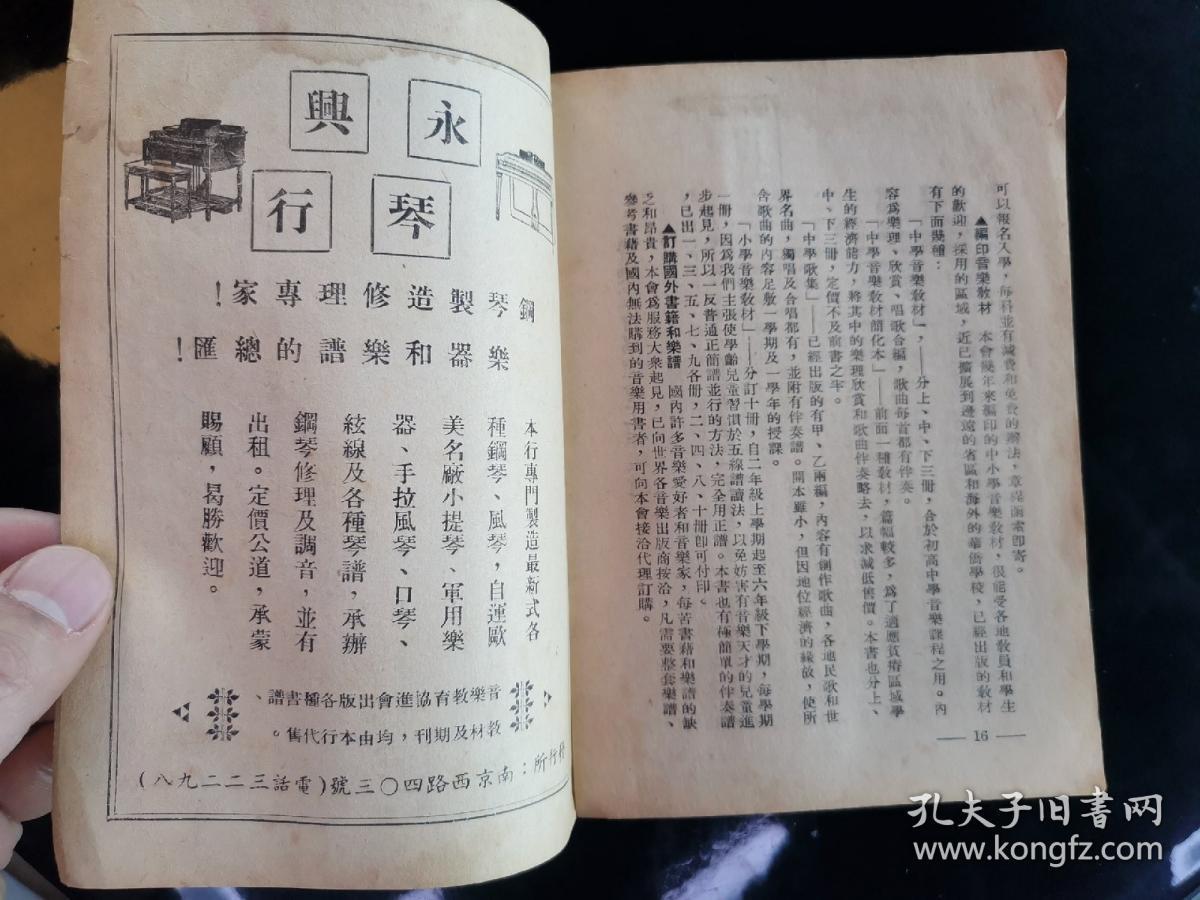 可以報名入學，每科並有減費和免費的辦法，章程函索卽寄。
▲編印音樂教材　本會幾年來編印的中小學音樂教材，很能受各地教員和學生
的歡迎，採用的區域，近已擴展到邊遠的省區和海外的華僑學校，已經出版的教材
有下面幾種：
「中學音樂教材」，——分上、中、下三冊，合於初高中學音樂課程之用。內
容爲樂理、欣賞、唱歌合編，歌曲每首都有伴奏。
「中學音樂教材簡化本」——前面一種教材，篇幅較多，爲了適應貧瘠區域學
生的經濟能力，將其中的樂理欣賞和歌曲伴奏略去，以求減低售價。本書也分上、
中、下三冊，定價不及前書之半。
「中學歌集」——已經出版的有甲、乙兩編，內容有創作歌曲，各地民歌和世
界名曲，獨唱及合唱都有，並附有伴奏譜。開本雖小，但因地位經濟的緣故，使所
含歌曲的內容足敷一學期及一學年的授課。
「小學音樂教材」——分訂十冊，自二年級上學期起至六年級下學期，每學期
一冊，因爲我們主張使學齡兒童習慣於五線譜讀法，以免妨害有音樂天才的兒童進
步起見，所以一反普通正簡譜並行的方法，完全用正譜。本書也有極簡單的伴奏譜
，已出一、三、五、七、九各冊，二、四、八、十冊卽可付印。
▲訂購國外書籍和樂譜　國內許多音樂愛好者和音樂家，每苦書籍和樂譜的缺
乏和昂貴，本會爲服務大衆起見，已向世界各音樂出版商接洽，凡需要整套樂譜、
參考書籍及國內無法購到的音樂用書者，可向本會接洽代理訂購。
— 16 —
永興
琴行
鋼琴製造修理專家！
樂器和樂譜的總匯！
本行專門製造最新式各
種鋼琴、風琴，自運歐
美名廠小提琴、軍用樂
器、手拉風琴、口琴、
絃線及各種琴譜，承辦
鋼琴修理及調音，並有
出租。定價公道，承蒙
賜顧，曷勝歡迎。
音樂教育協進會出版各種書譜、
教材及期刊，均由本行代售。
行所：南京西路四〇三號（電話三二二九八）
孔夫子旧书网
www.kongfz.com